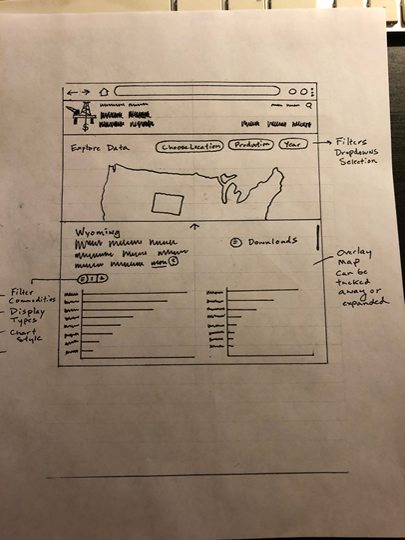 $
Explore Data
Choose Location
Prodution
Year
Filters
Dropdowns
Selection
Wyoming
Downloads
Overlay
Map
Can be
tucked
away or
expanded
Filter
Commodities
Display
Types
Chart
Style